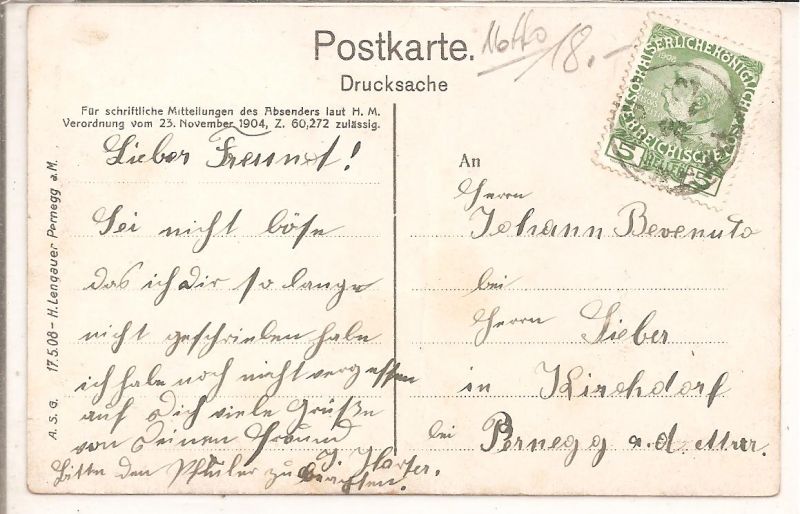 Postkarte.
Drucksache
18.-
Für schriftliche Mitteilungen des Absenders laut H. M.
Verordnung vom 23. November 1904, Z. 60,272 zulässig.
Lieber Freund!
Sei nicht böse
das ich dir so lange
nicht geschrieben habe
ich habe noch nicht vergessen
auf Dich viele Grüße
von Deinen Freund
J.
Bitte den zu
A. S. G. 17.5.08 - H. Lengauer Pernegg a. M.
An
Herrn
Johann Bevenuto
bei
Herrn Lieber
in Kirchdorf
bei Pernegg a. d. Mur.
1908
5 HELLER 5